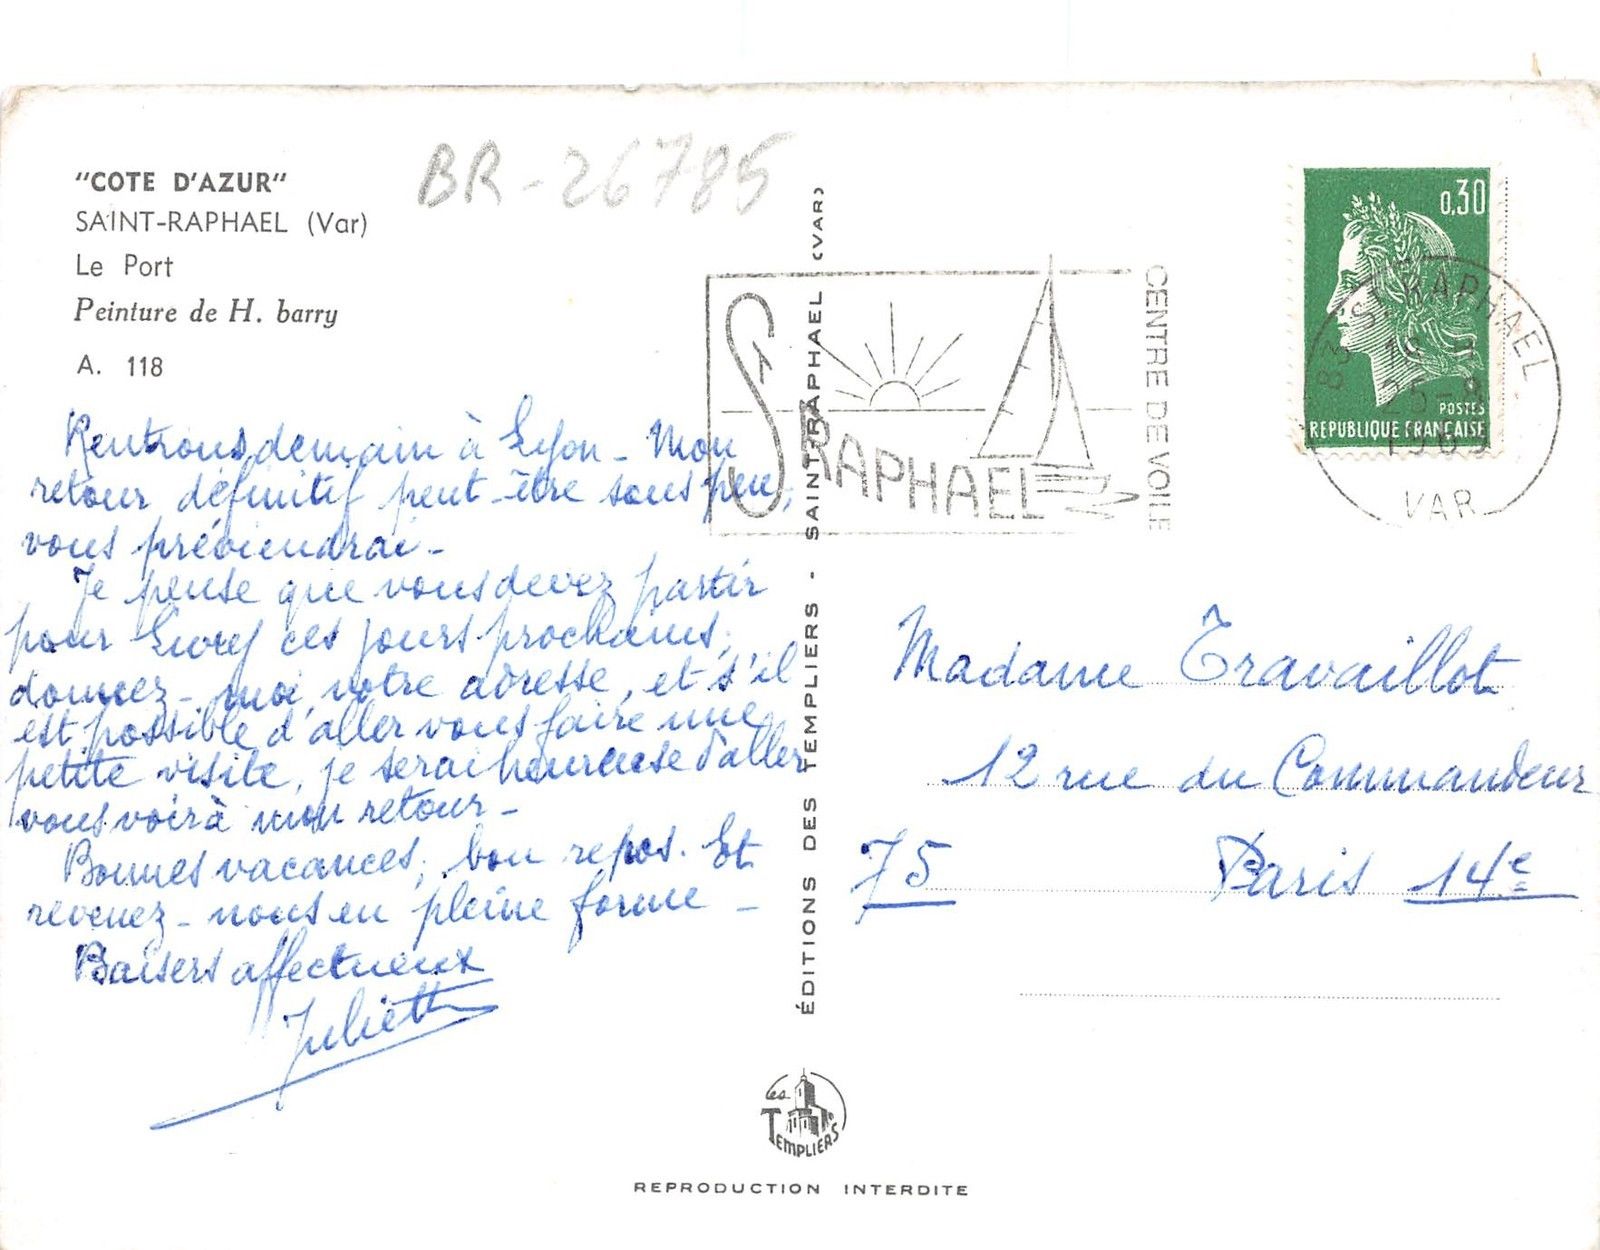 "COTE D'AZUR"
SAINT-RAPHAEL (Var)
Le Port
Peinture de H. barry
A. 118
BR-26785
Rentrons demain à Lyon - Mon
retour définitif peut-être sous peu,
vous préviendrai -
Je pense que vous devez partir
pour ces jours prochains,
donnez-moi votre adresse, et s'il
est possible d'aller vous faire une
petite visite, je serai heureuse d'aller
vous voir à mon retour -
Bonnes vacances, bon repos. Et
revenez-nous en pleine forme -
Baisers affectueux
Juliette
ÉDITIONS DES TEMPLIERS - SAINT-RAPHAEL (VAR)
ST RAPHAEL
CENTRE DE VOILE
0,30
POSTES
REPUBLIQUE FRANCAISE
83 ST RAPHAEL
25-8
1969
VAR
Madame Travaillot
12 rue du Commandeur
75 Paris 14e
Les
TEMPLIERS
REPRODUCTION INTERDITE